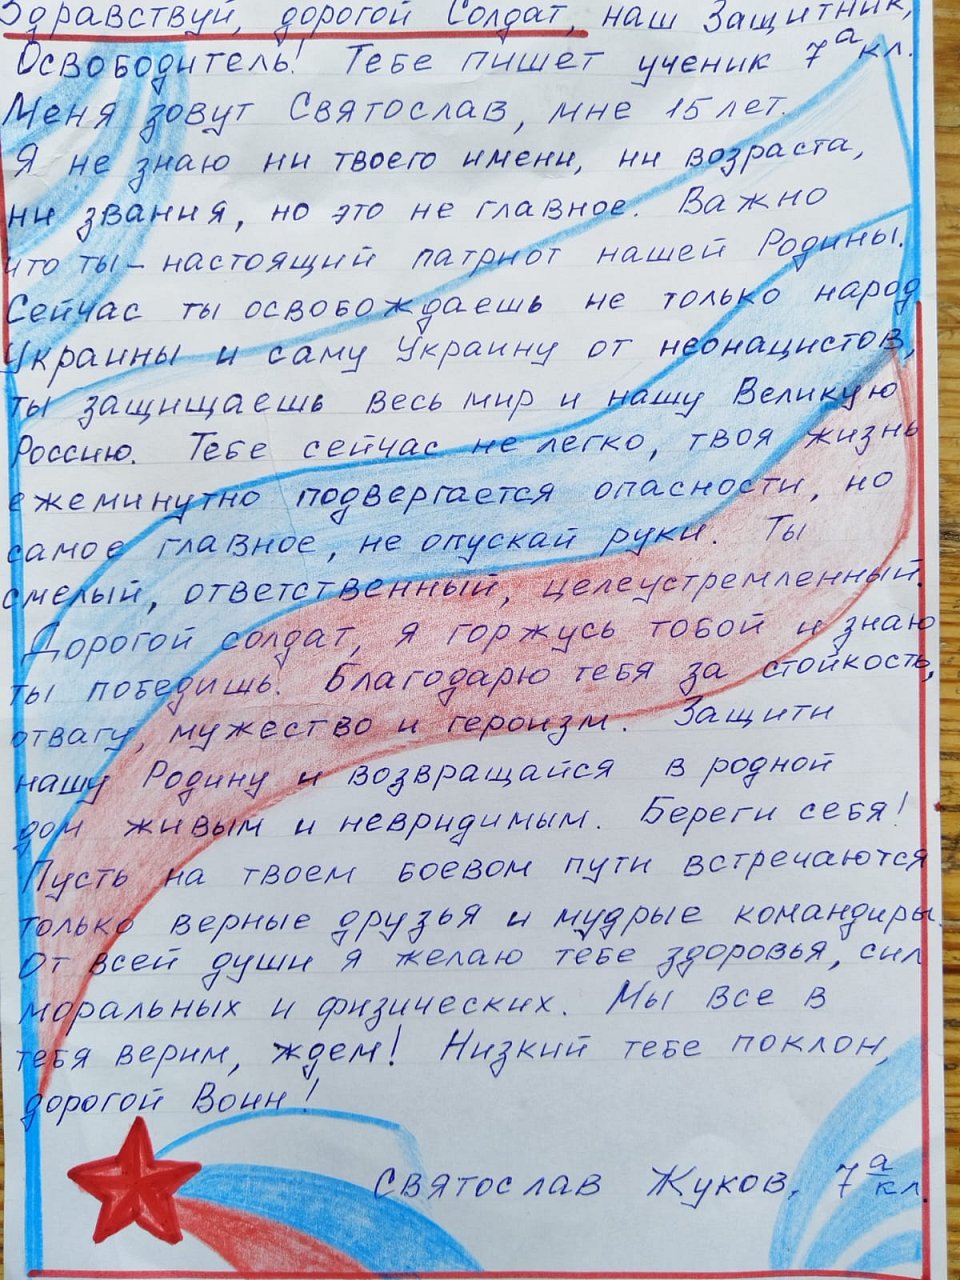 Здравствуй, дорогой Солдат, наш Защитник,
Освободитель! Тебе пишет ученик 7а кл.
Меня зовут Святослав, мне 15 лет.
Я не знаю ни твоего имени, ни возраста,
ни звания, но это не главное. Важно
что ты - настоящий патриот нашей Родины.
Сейчас ты освобождаешь не только народ
Украины и саму Украину от неонацистов,
ты защищаешь весь мир и нашу Великую
Россию. Тебе сейчас не легко, твоя жизнь
ежеминутно подвергается опасности, но
самое главное, не опускай руки. Ты
смелый, ответственный, целеустремленный.
Дорогой солдат, я горжусь тобой и знаю
ты победишь! Благодарю тебя за стойкость,
отвагу, мужество и героизм. Защити
нашу Родину и возвращайся в родной
дом живым и невридимым. Береги себя!
Пусть на твоем боевом пути встречаются
только верные друзья и мудрые командиры.
От всей души я желаю тебе здоровья, сил
моральных и физических. Мы все в
тебя верим, ждем! Низкий тебе поклон,
дорогой Воин!
Святослав Жуков, 7а кл.